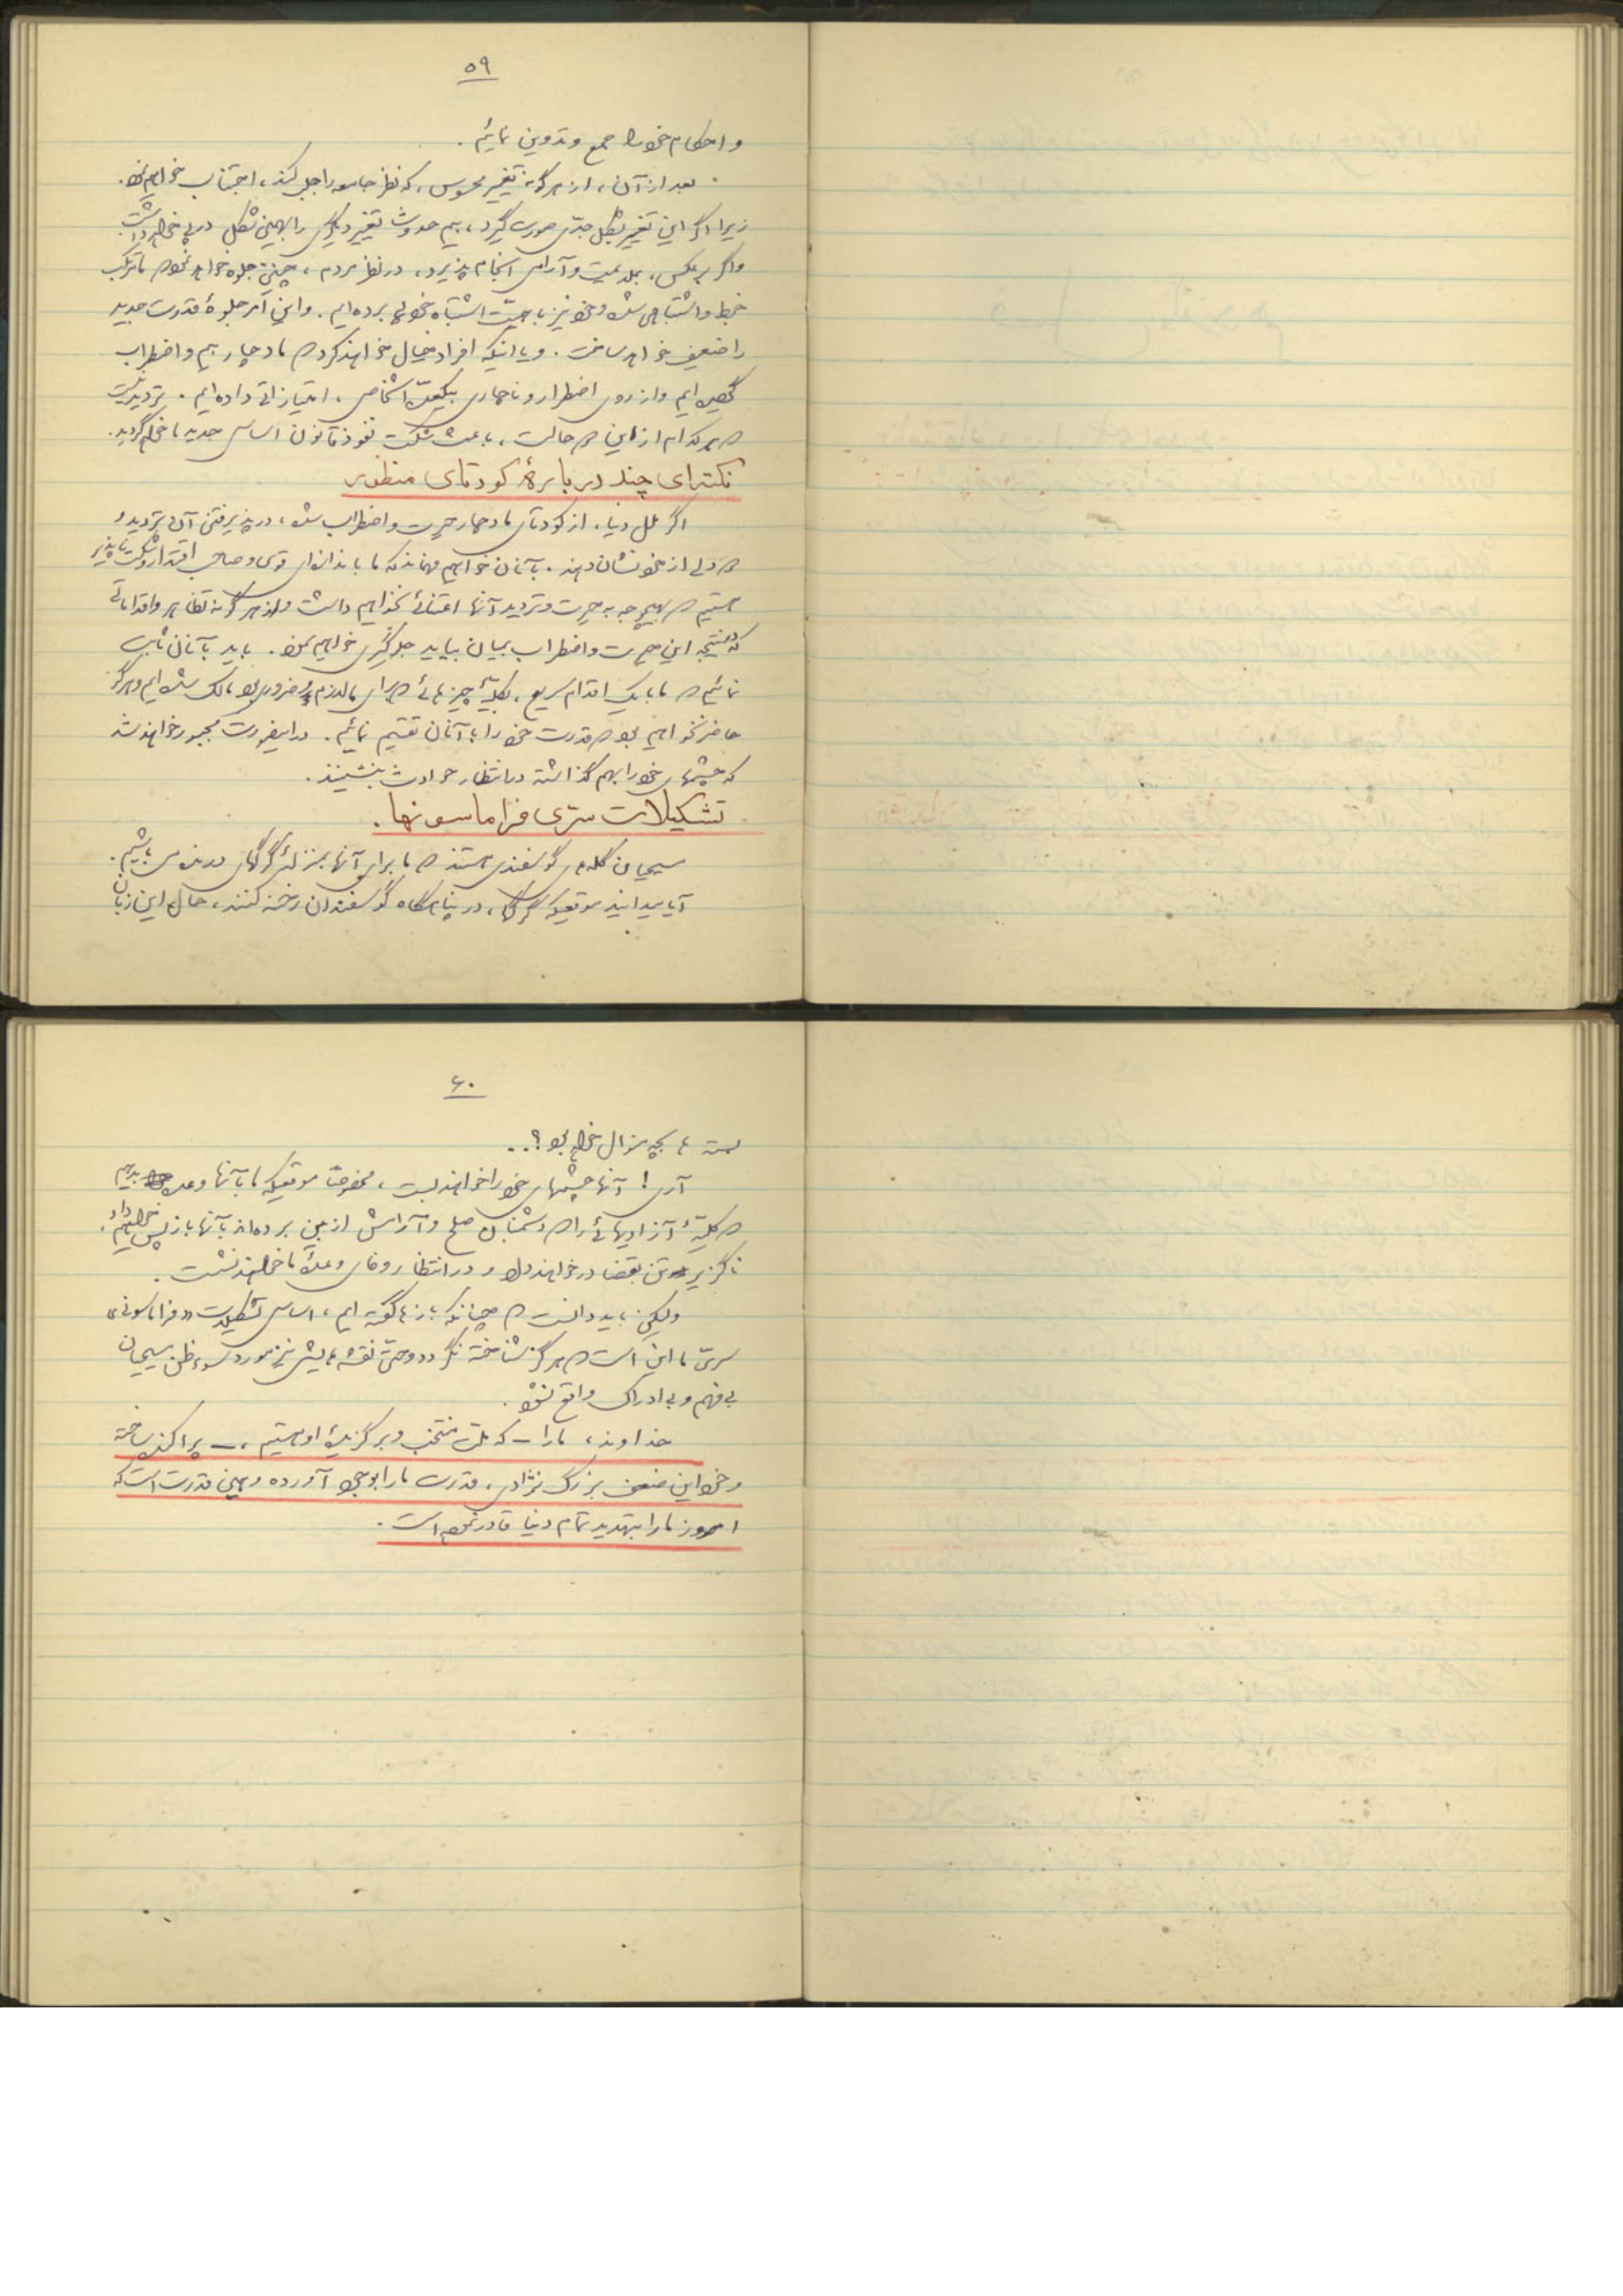 ۵۹
و احکام خود را جمع و تدوین نمائیم .
بعد از آن ، از هرگونه تغییر محسوس ، که نظر جامعه را جلب کند ، اجتناب خواهیم نمود .
زیرا اگر این تغییر بشکل جدی صورت گیرد ، بیم حدوث تغییر دیگری را بهمین شکل در پی خواهد داشت
و اگر برعکس ، بملایمت و آرامی انجام پذیرد ، در نظر مردم ، چنین جلوه خواهد نمود که ما مرتکب
خبط و اشتباهی شده و خود نیز باهمیت اشتباه خود پی برده ایم . و این امر جلوهٔ قدرت جدید
را ضعیف خواهد ساخت . و یا اینکه افراد خیال خواهند کرد که ما دچار بیم و اضطراب
گردیده ایم و از روی اضطرار و ناچاری بیکعده اشخاص ، امتیازاتی داده ایم . تردید نیست
که هر کدام از این دو حالت ، باعث شکست نفوذ قانون اساسی جدید ما خواهد گردید .
نکته‌ای چند در بارهٔ کودتای منظور
اگر ملل دنیا ، از کودتای ما دچار حیرت و اضطراب شده ، در پذیرفتن آن تردید و
دو دلی از خود نشان دهند . بآنان خواهیم فهماند که ما باندازه‌ای قوی و صاحب اقتدار شکست ناپذیر
هستیم که بهیچوجه به حیرت و تردید آنها اعتنائی نخواهیم داشت و از هرگونه تظاهر و اقداماتی
که در نتیجه این حیرت و اضطراب بمیان بیاید جلوگیری خواهیم نمود . باید بآنان ثابت
نمائیم که ما با یک اقدام سریع ، بکلیهٔ چیزهائی که برای ما لازم و ضروری بود مالک شده ایم و هرگز
حاضر نخواهیم بود که قدرت خود را با آنان تقسیم نمائیم . در اینصورت مجبور خواهند شد
که چشمهای خود را بهم گذاشته در انتظار حوادث بنشینند .
تشکیلات سری فراماسونها .
مسیحیان گله‌ای گوسفندی هستند که ما برای آنها بمنزلهٔ گرگهای درنده می باشیم .
آیا میدانید موقعیکه گرگها ، در پناهگاه گوسفندان رخنه کنند ، حال این زبان
۶۰
بسته ها بچه منوال خواهد بود ؟ . .
آری ! آنها چشمهای خود را خواهند بست ، مخصوصاً موقعیکه ما بآنها وعده بدهیم
که کلیهٔ آزادیهائی را که دشمنان صلح و آرامش از بین برده اند بآنها باز پس خواهیم داد .
ناگزیر تن بقضا در خواهند داد و در انتظار وفای وعدهٔ ما خواهند نشست .
ولیکن باید دانست که چنانکه بارها گفته ایم ، اساس تشکیلات « فراماسونی »
سری ما این است که هرگز شناخته نگردد و حتی نقشه هایش نیز مورد سوء ظن مسیحیان
بی فهم و بی ادراک واقع نشود .
خداوند ، ما را – که ملت منتخب و برگزیدهٔ او هستیم ، – پراکنده ساخته
و خود این ضعف بزرگ نژادی ، قدرت ما را بوجود آورده و همین قدرت است که
امروز ما را بتهدید تمام دنیا قادر نموده است .